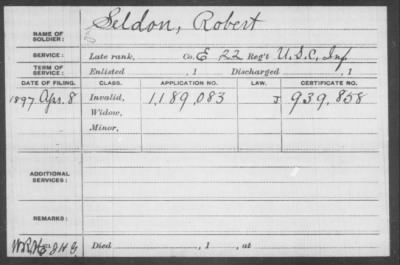 NAME OF SOLDIER: Seldon, Robert
SERVICE: Late rank, Co. E 22 Reg't U.S.C. Inf
TERM OF SERVICE: Enlisted , 1 Discharged , 1
DATE OF FILING. CLASS. APPLICATION NO. LAW. CERTIFICATE NO.
1897 Apr. 8 Invalid, 1,189,083 J 939,858
Widow,
Minor,
ADDITIONAL SERVICES:
REMARKS:
Died , 1 , at